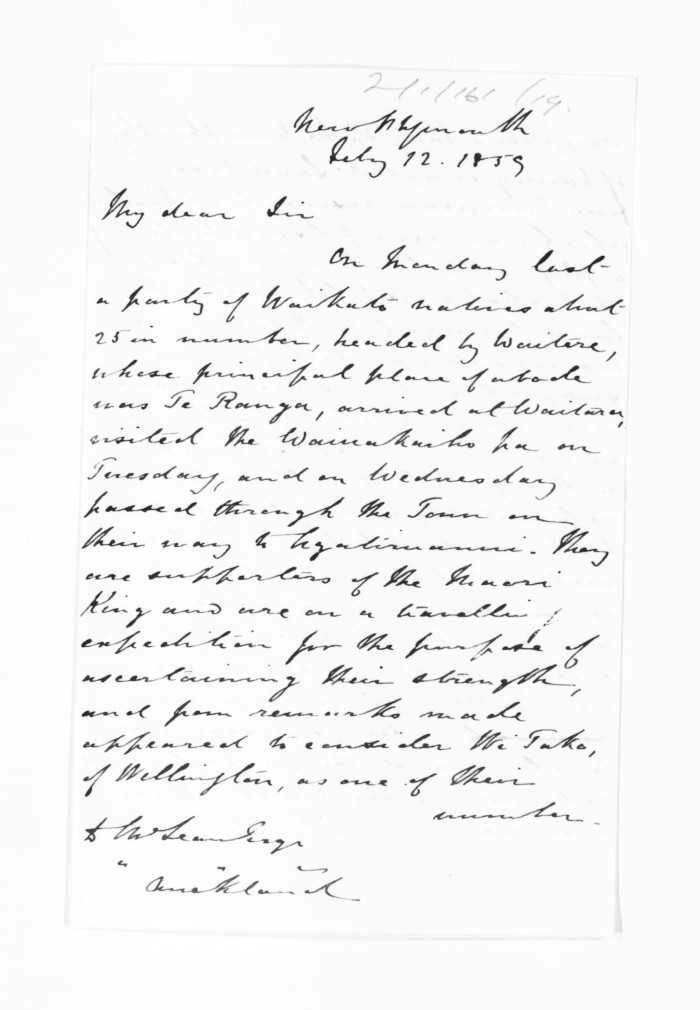 New Plymouth
July 12. 1859
My dear Sir
On Monday last
a party of Waikato natives about
25 in number, headed by Waitere,
whose principal place of abode
was Te Ranga, arrived at Waitara,
visited the Waiwakaiho pa on
Tuesday, and on Wednesday
passed through the Town on
their way to Ngatiruanui. They
are supporters of the Maori
King and are on a travelling
expedition for the purpose of
ascertaining their strength,
and from remarks made
appeared to consider Wi Tako,
of Wellington, as one of their
number.
D McLean Esqr
" " "
Auckland